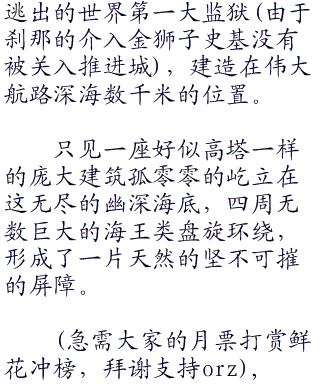 逃出的世界第一大监狱(由于
刹那的介入金狮子史基没有
被关入推进城)，建造在伟大
航路深海数千米的位置。
只见一座好似高塔一样
的庞大建筑孤零零的屹立在
这无尽的幽深海底，四周无
数巨大的海王类盘旋环绕，
形成了一片天然的坚不可摧
的屏障。
(急需大家的月票打赏鲜
花冲榜，拜谢支持orz)，